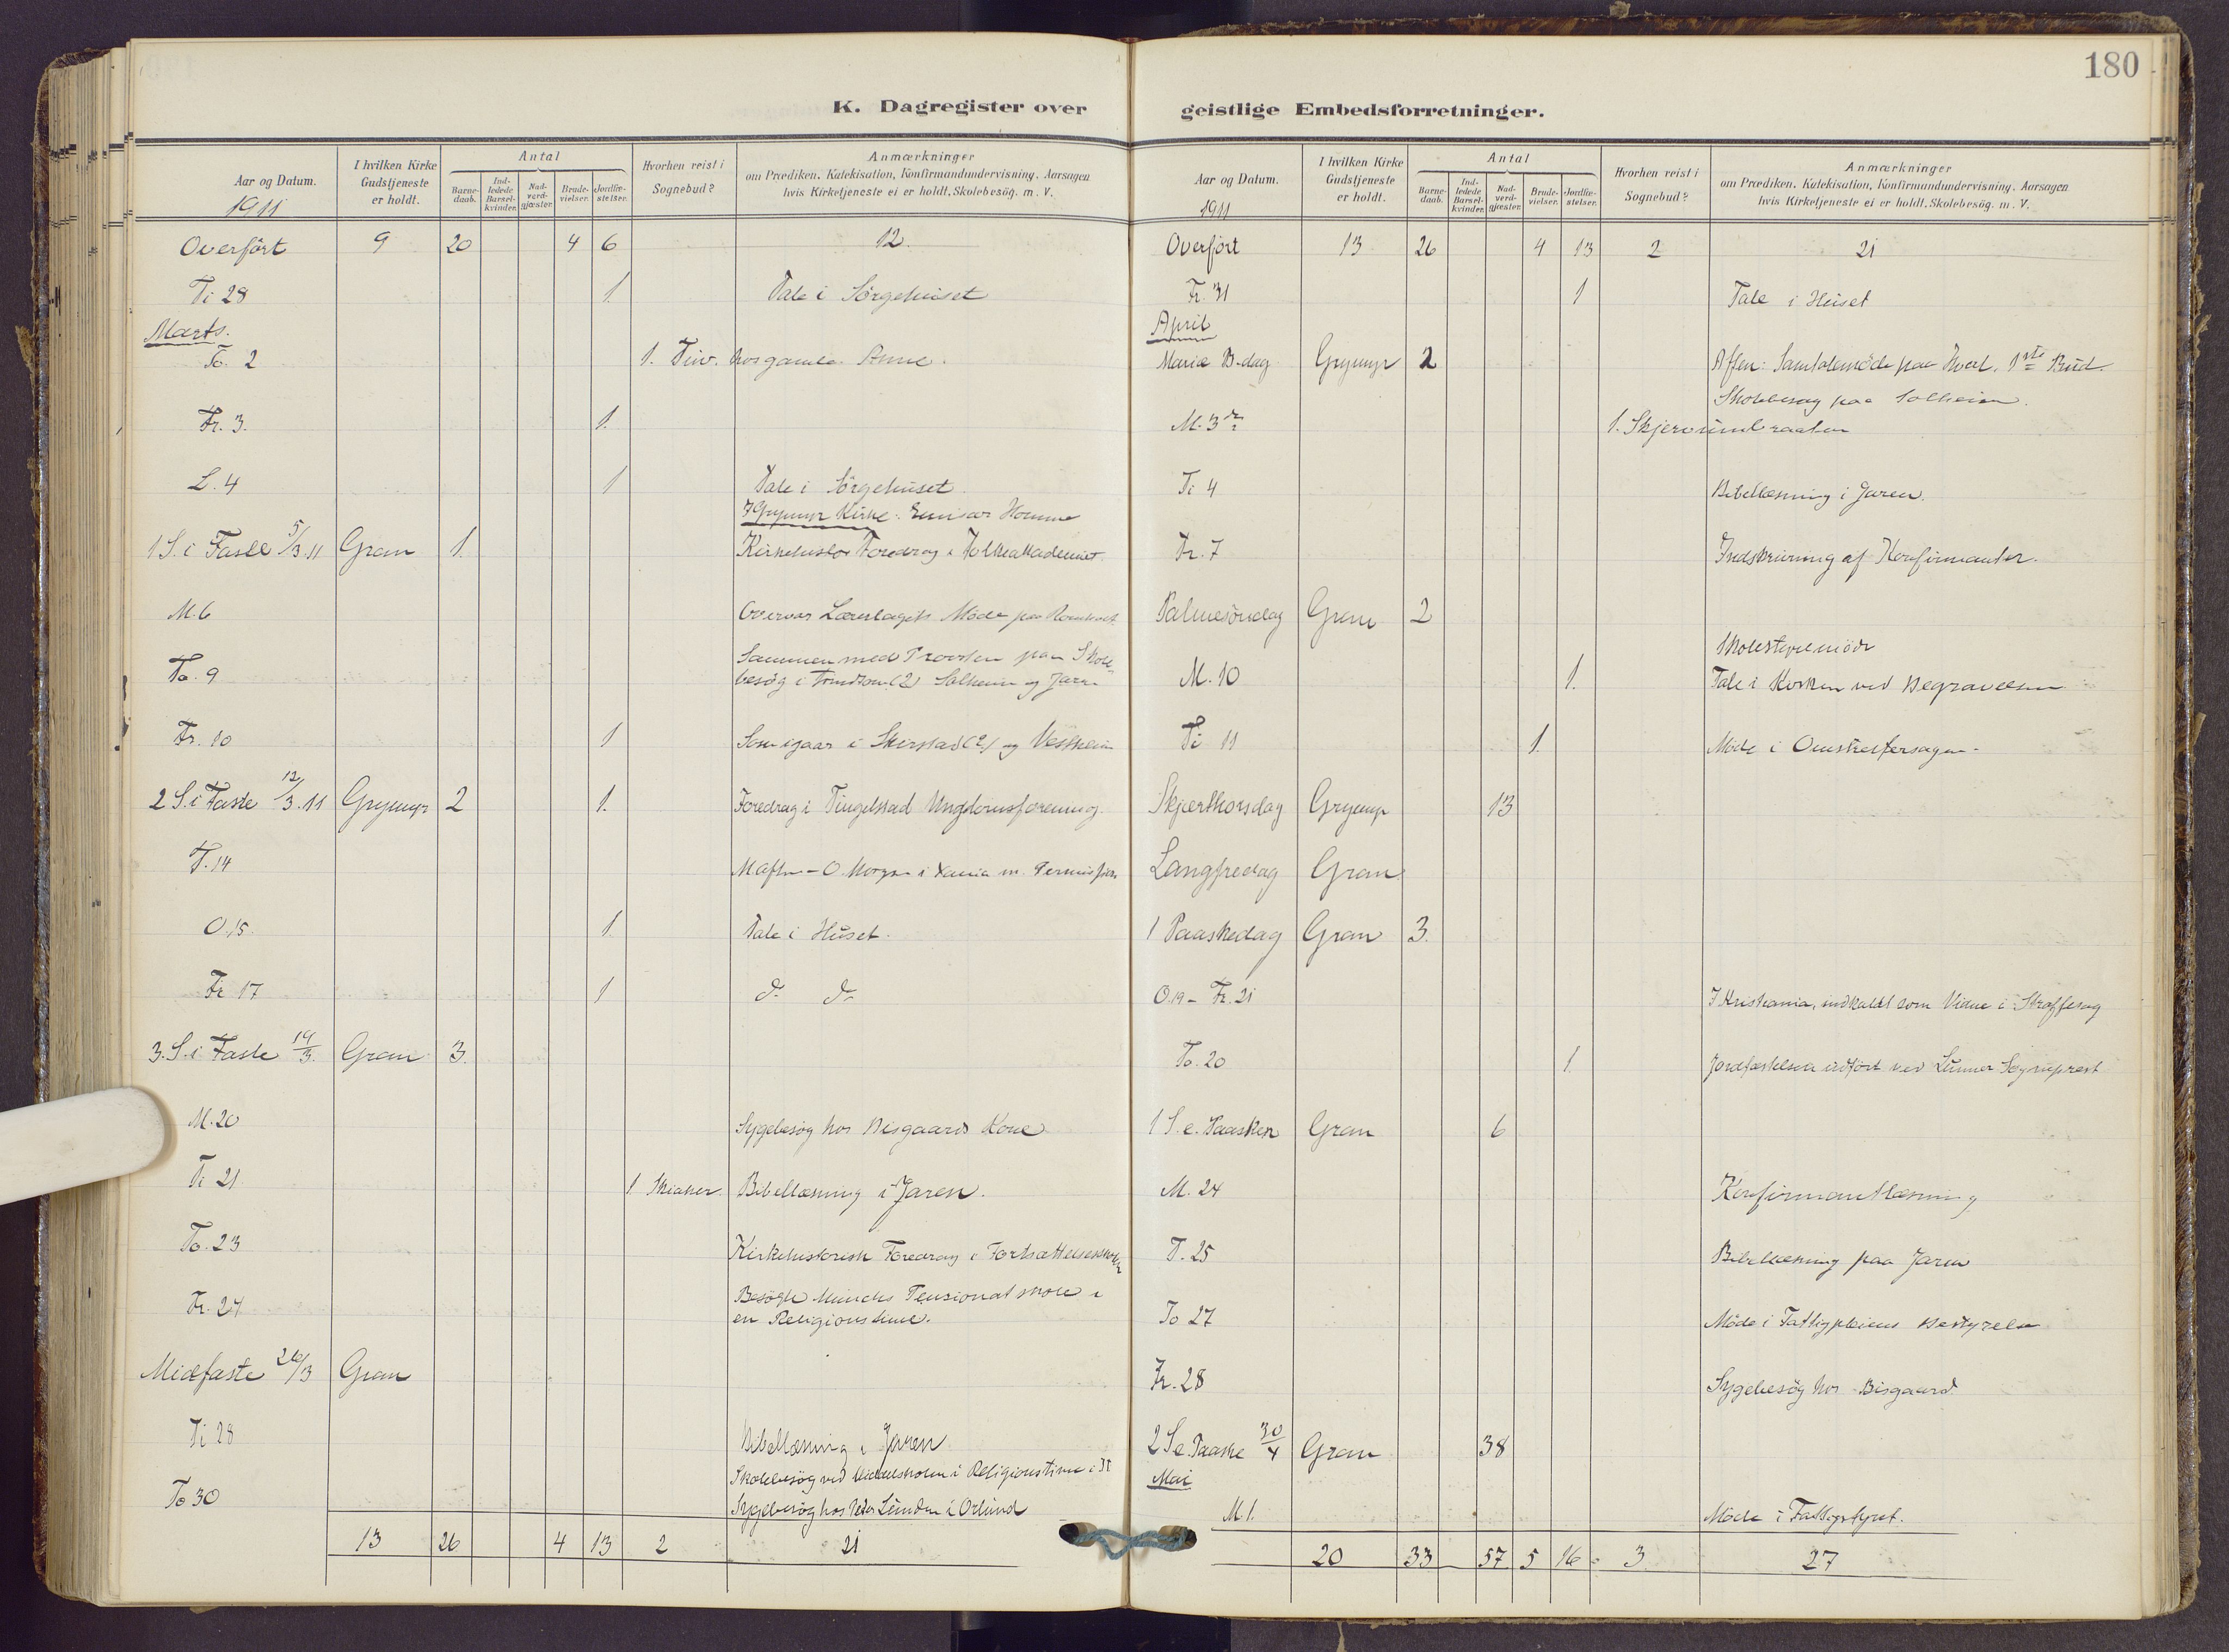 180
K. Dagregister over
Aar og Datum.
I hvilken Kirke Gudstjeneste er holdt.
Antal
Barne-daab.
Ind-ledede Barsel-kvinder.
Nad-verd-gjæster.
Brude-vielser.
Jordfæ-stelser.
Hvorhen reist i Sognebud?
Anmærkninger
om Prædiken, Katekisation, Konfirmandundervisning, Aarsagen
hvis Kirketjeneste ei er holdt, Skolebesög. m. V.
1911
Overført 9 20 4 6 12.
Ti 28 1. Tale i Sörgehuset
Marts.
To. 2 1. hos gamle Anne.
Fr. 3. 1.
L. 4 1 Tale i Sörgehuset
I Grymyr Kirke: Emisær Homme
1 S. i Faste 5/3.11 Gran 1. Foredrag i Folkeakademiet
M. 6 Overvar Lærerlagets Möde paa
Sammen med Provsten paa Skole-
To. 9 besög i (2) Solheim og Jaren
Fr. 10 1 Som igaar i Skirstad (2) og Vestheim
2 S. i Faste 12/3.11 Grymyr 2 1. Foredrag i Tingelstad Ungdomsforening.
T. 14 M aften - O. Morgen i Xania m. Permission
O. 15. 1. Tale i Huset.
Fr 17 1 do do
3. S. i Faste 19/3. Gran 3.
M. 20 Sygebesög hos Bisgaards Kone
Ti 21. 1 Skiaker. Bibellæsning i Jaren.
To. 23 Kirkehistorisk Foredrag i Fortsættelsesskolen
Besögte Muncks Pensionatskole i
Fr. 24 en Religionstime.
Midfaste 26/3 Gran
Ti 28 Bibellæsning i Jaren
Skolebesög ved Middelskolen i Religionstime i
To 30 Sygebesög hos Peder Lunden i Orlund
13 26 4 13 2 21
geistlige Embedsforretninger.
Aar og Datum.
I hvilken Kirke Gudstjeneste er holdt.
Antal
Barne-daab.
Ind-ledede Barsel-kvinder.
Nad-verd-gjæster.
Brude-vielser.
Jordfæ-stelser.
Hvorhen reist i Sognebud?
Anmærkninger
om Prædiken, Katekisation, Konfirmandundervisning, Aarsagen
hvis Kirketjeneste ei er holdt, Skolebesög. m. V.
1911
Overført 13 26 4 13 2 21
Fr. 31 1 Tale i Huset
April
Mariæ B.dag Grymyr 2 Aften: Samtalemöde paa Hval. 1ste Bud.
Skolebesög paa Solheim.
M. 3die 1. Skjervumbraaten
Ti 4 Bibellæsning i Jaren.
Fr. 7 Indskrivning af Konfirmanter.
Palmesöndag Gran 2
Skolestyremöde
M. 10 1. Tale i Kirken ved Begravelsen
Ti 11 1. Möde i
Skjærthorsdag Grymyr 13
Langfredag Gran
1 Paaskedag Gran 3.
O. 19 - Fr. 21 I Kristiania, indkaldt som Vidne i Straffesag
To. 20 1. Jordfæstelsen udfört ved Lunner Sogneprest
1 S. e. Paasken Gran 6
M. 24 Konfirmantlæsning
T. 25 Bibellæsning paa Jaren
To 27 Möde i Fattigpleiens Bestyrelse
Fr. 28 Sygebesög hos Bisgaard.
2 S e. Paaske 30/4 Gran 38
Mai
M. 1. Möde i Fattigstyret.
20 33 57 5 16 3 27